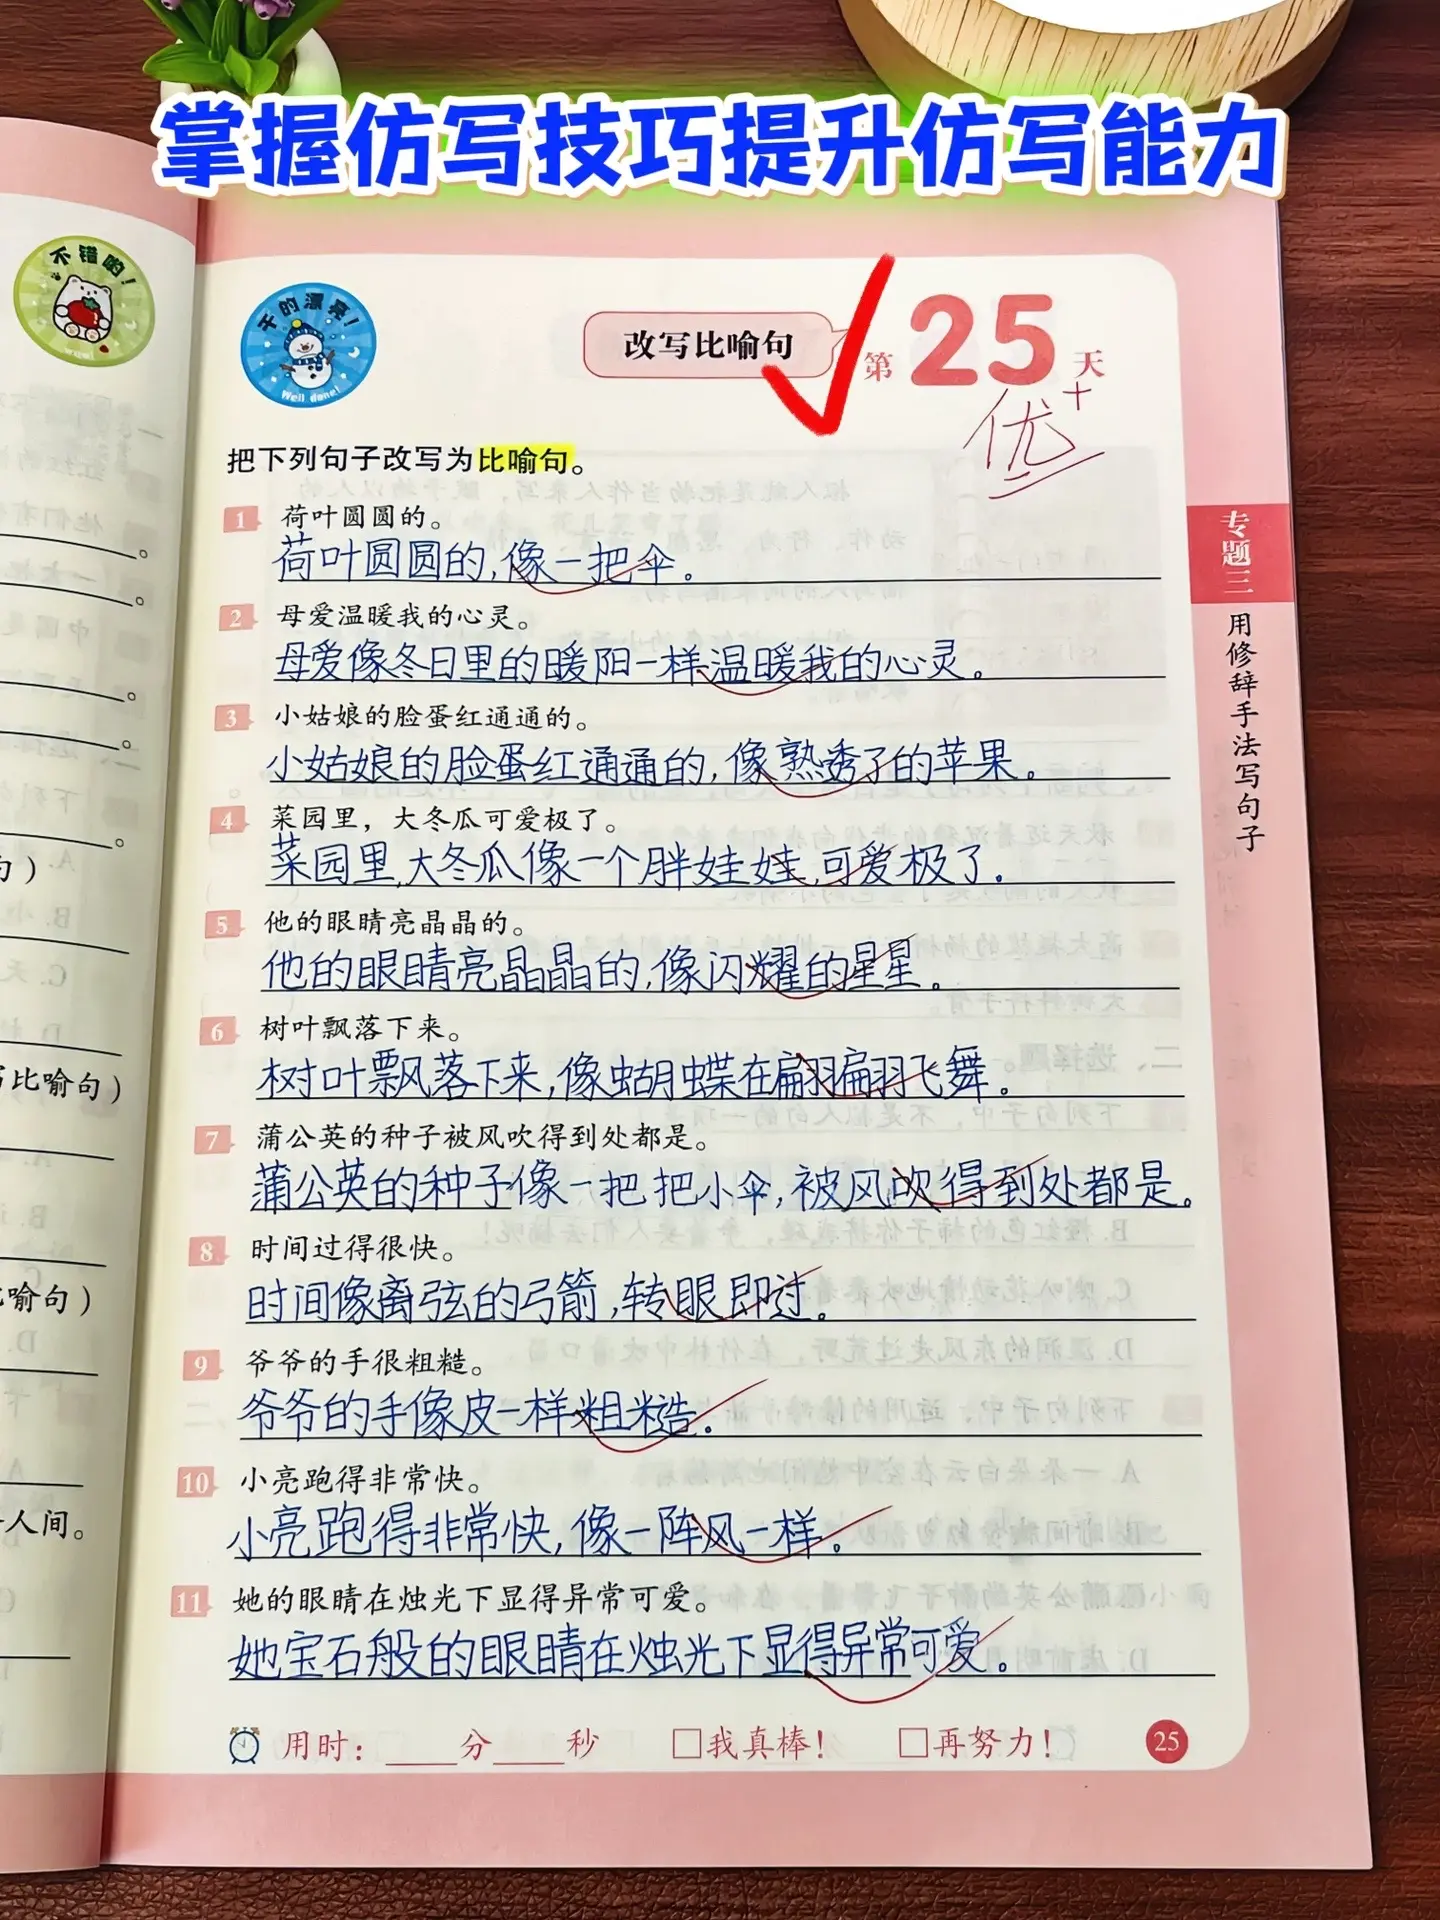 掌握仿写技巧提升仿写能力
不错哟!
干的漂亮!
Well done!
改写比喻句
第25天
优+
把下列句子改写为比喻句。
1 荷叶圆圆的。
荷叶圆圆的,像一把伞。
2 母爱温暖我的心灵。
母爱像冬日里的暖阳一样温暖我的心灵。
3 小姑娘的脸蛋红通通的。
小姑娘的脸蛋红通通的,像熟透了的苹果。
4 菜园里，大冬瓜可爱极了。
菜园里,大冬瓜像一个胖娃娃,可爱极了.
5 他的眼睛亮晶晶的。
他的眼睛亮晶晶的,像闪耀的星星。
6 树叶飘落下来。
树叶飘落下来,像蝴蝶在翩翩飞舞。
7 蒲公英的种子被风吹得到处都是。
蒲公英的种子像一把把小伞,被风吹得到处都是。
8 时间过得很快。
时间像离弦的弓箭,转眼即过。
9 爷爷的手很粗糙。
爷爷的手像皮一样粗糙。
10 小亮跑得非常快。
小亮跑得非常快,像一阵风一样。
11 她的眼睛在烛光下显得异常可爱。
她宝石般的眼睛在烛光下显得异常可爱。
用时:____分____秒 □我真棒! □再努力!
25
专题三
用修辞手法写句子
句)
写比喻句)
比喻句)
人间。